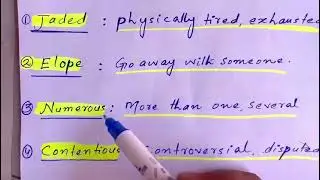 ① Jaded : physically tired, exhausted
② Elope : Go away with someone.
③ Numerous : More than one, several
④ Contentious controversial, disputed